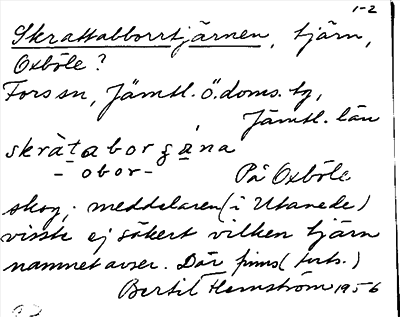 1-2
Skrattabborrtjärnen, tjärn,
Oxböle?
Fors sn, Jämtl. ö. doms. tg,
Jämtl. län
skràtaborʒana
- obor -
På Oxböle
skog; meddelaren (i Utanede)
visste ej säkert vilken tjärn
namnet avser. Där finns (forts.)
Bertil Hemström 1956